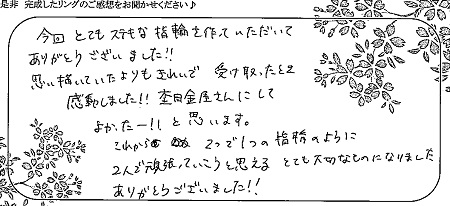 是非 完成したリングのご感想をお聞かせください♪
今回 とても ステキな 指輪を作っていただいて
ありがとうございました!!
思い描いていたよりもきれいで 受け取ったとき
感動しました!! 杢目金屋さんにして
よかったー!! と思います。
これから 2つで1つの指輪のように
2人で頑張っていこうと思える とても大切なものになりました
ありがとうございました!!